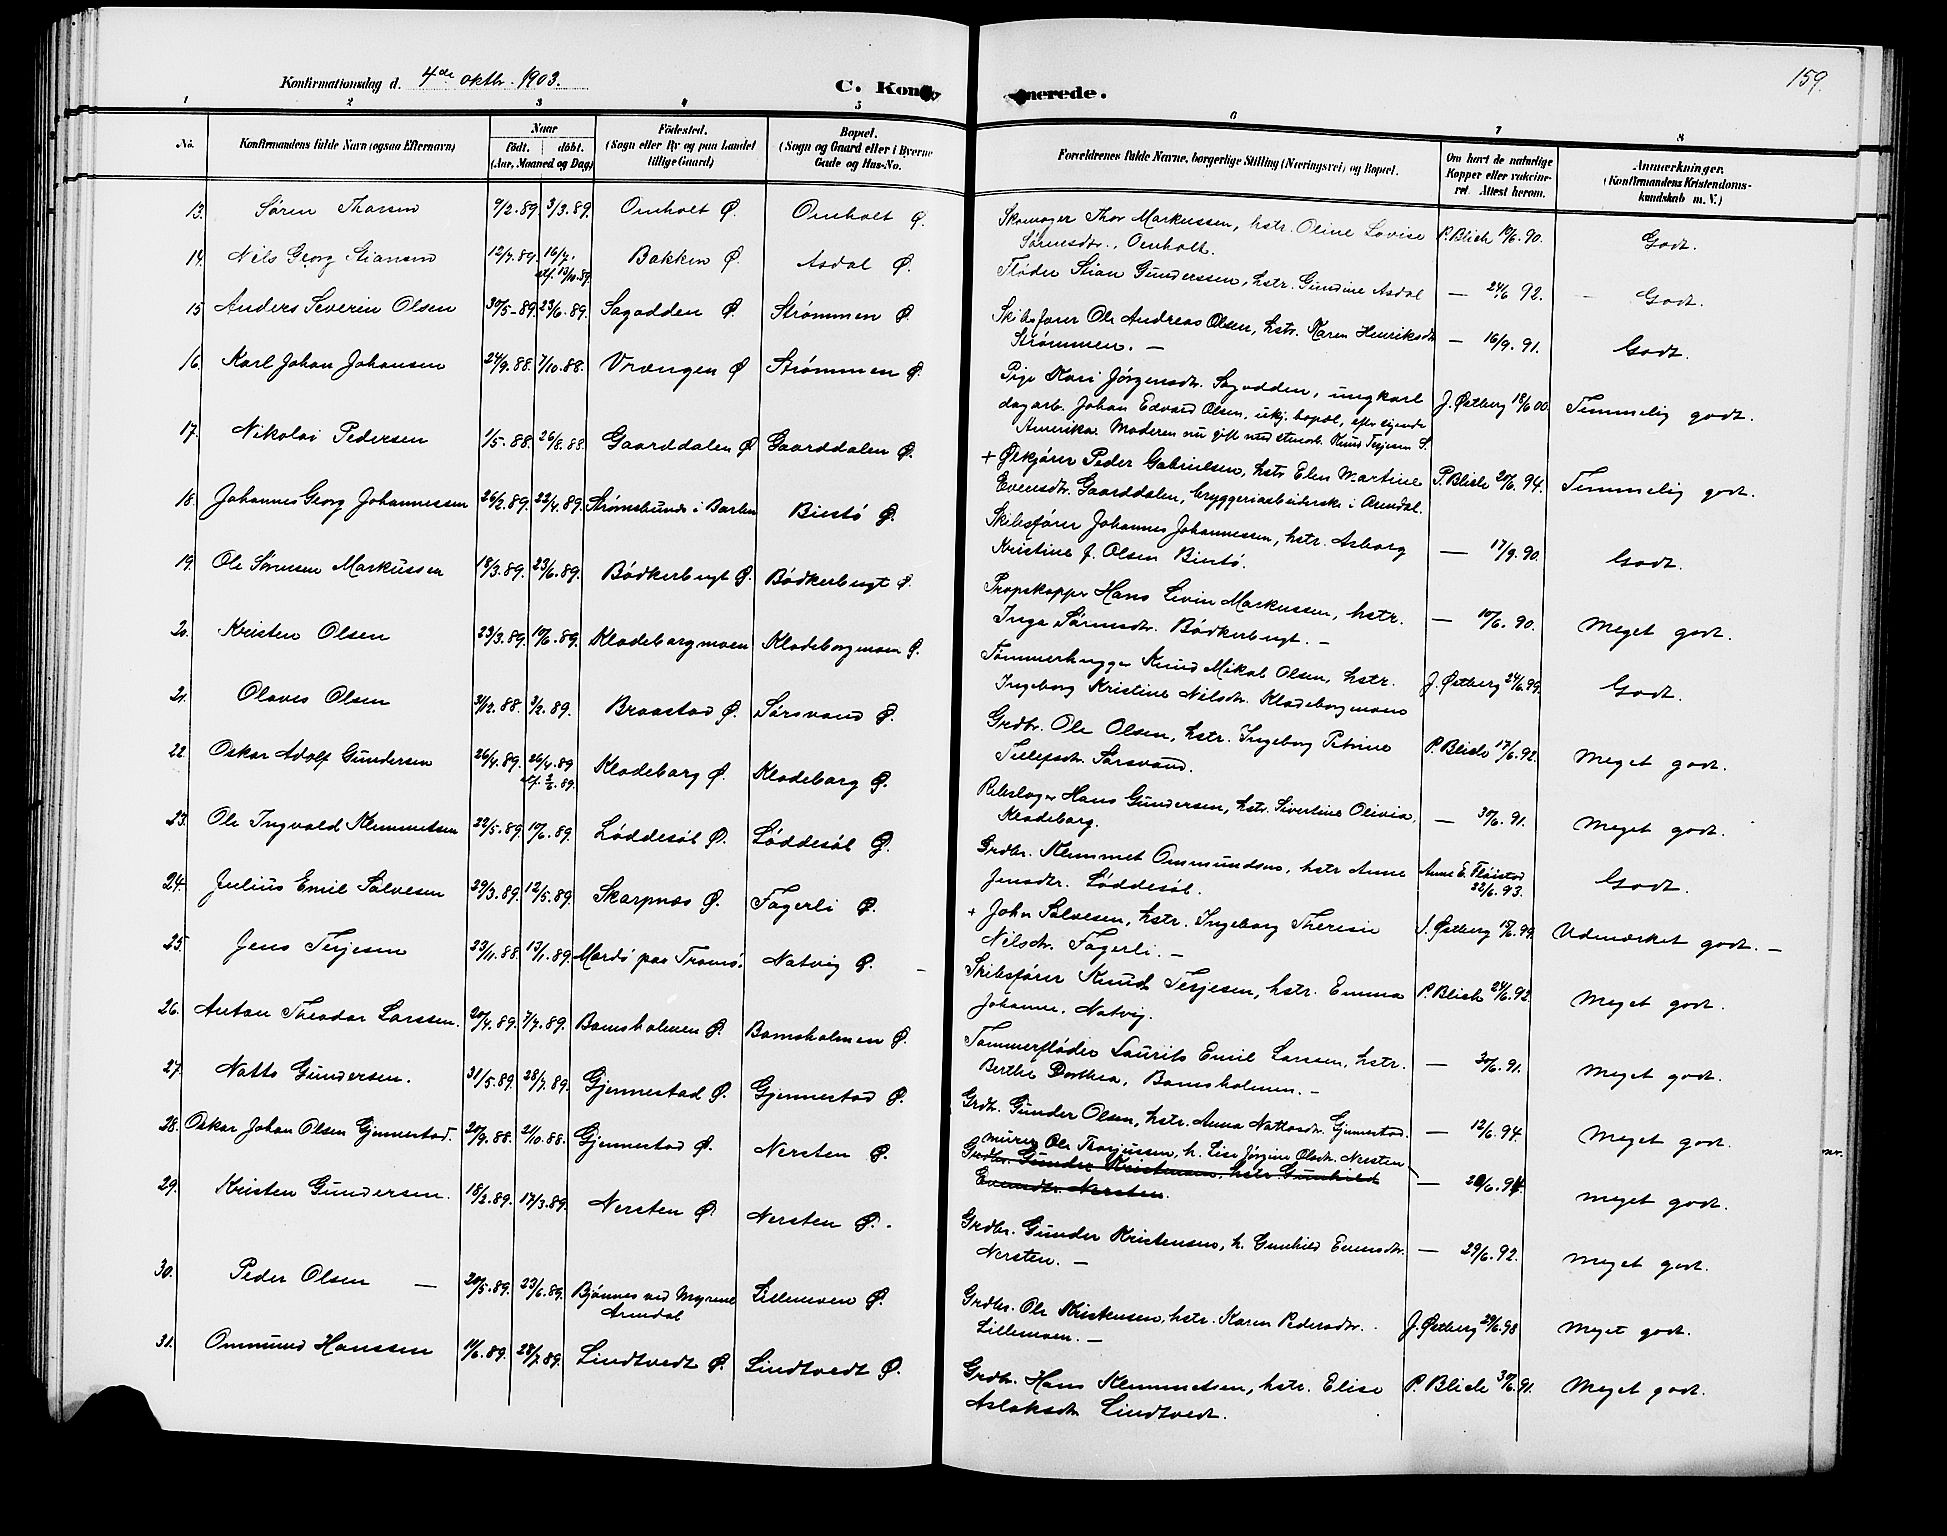 Konfirmationsdag d. 4de oktbr. 1903.
C. Kon
merede.
159.
1 2 3 4 5 6 7 8
No. Konfirmandens fulde Navn (ogsaa Efternavn) Naar födt. döbt. (Aar, Maaned og Dag) Födested. (Sogn eller By og paa Landet tillige Gaard) Bopæl. (Sogn og Gaard eller i Byerne Gade og Hus-No. Forældrenes fulde Navne, borgerlige Stilling (Næringsvei) og Bopæl. Om havt de naturlige Kopper eller vakcineret. Attest herom. Anmærkninger. (Konfirmandens Kristendomskundskab m. V.)
13. Søren Thorsen 9/2.89. 3/3.89. Omholt Ø. Omholt Ø. Skomager Thor Markussen, hstr. Oline Lovise P. Blich 10/6.90. Godt.
Sørensdtr., Omholt.
14. Nils Georg Stiansen 12/7.89. 16/7. Bakken Ø. Asdal Ø. Fløder Stian Gunderssen, hstr. Gundine Asdal — 24/6 92. Godt.
15 Anders Severin Olsen 30/5-89. 23/6.89. Sagodden Ø. Strømmen Ø. Skibsfører Ole Andreas Olsen, hstr. Karen Henriksdt. — 16/9.91. Godt.
Strømmen. —
16. Karl Johan Johansen 24/9.88. 7/10.88. Vrængen Ø Strømmen Ø. Pige Kari Jørgensdtr. Sagodden, ungkarl J. Østberg 18/6 00. Temmelig godt.
dagarb. Johan Edvard Olsen, ukj. bopæl, efter sigende
Amerika. Moderen nu gift med stenarb. Knud Terjesen S.
17. Nikolai Pedersen 1/5-88. 26/8.88. Gaarddalen Ø Gaarddalen Ø. + Ølkjører Peder Gabrielsen, hstr Elen Martine P. Blich 20/6.94. Temmelig godt.
Evensdtr. Gaarddalen, bryggeriarbeiderske i Arendal.
18. Johannes Georg Johannessen 26/2.89. 22/4.89. Strømsbunds i Barbu Biestø Ø. Skibsfører Johannes Johannessen, hstr. Asborg — 17/9.90. Godt.
Kristine f. Olsen Biestø.
19. Ole Sørensen Markussen 18/3.89. 23/6.89. Bødkerbugt Ø. Bødkerbugt Ø. Propskapper Hans Levin Markussen, hstr. — 10/6.90. Meget godt.
Inga Sørensdtr. Bødkerbugt. —
20. Kristen Olsen 23/3.89. 10/6.89. Klodeborgmoen Klodeborgmoen Ø. Tømmerhugger Knud Mikal Olsen, hstr. J. Østberg 24/6.99. Godt.
Ingeborg Kristine Nilsdtr. Klodeborgmoen
21. Olaves Olsen 31/12.88. 3/2.89. Braastad Ø. Sørsvand Ø. Grdbr. Ole Olsen, hstr. Ingeborg Petrine P. Blich 17/6.92. Meget godt.
Tellefsdtr. Sørsvand.
22. Oskar Adolf Gundersen 26/4.89. 26/4.89 Klodeborg Ø. Klodeborg Ø. Rebslager Hans Gundersen, hstr. Sivertine Olivia, — 30/6.91. Meget godt.
Klodeborg.
23. Ole Ingvald Klemmetsen 22/5.89. 10/6.89. Løddesøl Ø. Løddesøl Ø. Grdbr. Klemmet Ommundsen, hstr Anne Anne E. Fløistad 22/6.93. Godt.
Jensdtr. Løddesøl.
24. Julius Emil Salvesen 29/3.89. 12/5.89. Skarpnes Ø. Fagerli Ø. + John Salvesen, hstr. Ingeborg Theresie J. Østberg 15/6.99. Udmærket godt. —
Nilsdtr. Fagerli. —
25. Jens Terjesen 23/11.88. 13/1.89. Mardø paa Tromø. Natvig Ø. — Skibsfører Knud Terjesen, hstr. Emma P. Blich 24/6.92. Meget godt.
Johanne, Natvig.
26. Anton Theodor Larssen. 20/4.89. 7/7.89. Bomsholmen Ø. Bomsholmen Ø. Tømmerfløder Laurits Emil Larsen, hstr. — 30/6.91. Meget godt.
Berthe Dorthea, Bomsholmen. —
27. Natto Gundersen. 31/5.89. 28/7.89. Gjennestad Ø. Gjennestad Ø. Grdb. Gunder Olsen, hstr. Anna Nattosdtr. Gjennestad. — 12/6.94. Meget godt.
28. Oskar Johan Olsen Gjennestad. 20/9.88. 21/10.88. Gjennestad Ø. Nersten Ø. murer Ole Thorjussen, h. Lise Jørgine Olsdtr. Nersten — 20/6.94. Meget godt.
Grdbr. Gunder Kristensen, hstr. Gunhild
Evensdtr. Nersten.
29. Kristen Gundersen. 18/2.89. 17/3.89. Nersten Ø. Nersten Ø. Grdbr. Gunder Kristensen, h. Gunhild Evensdtr. — 29/6.92. Meget godt.
Nersten. —
30. Peder Olsen — 20/5.89. 23/6.89. Bjønnes ved Myrene Lillemoen Ø. Grdbr. Ole Kristensen, hstr. Karen Pedersdtr. J. Østberg 29/6.98 Meget godt.
Arendal Lillemoen. —
31. Ommund Hanssen 11/6.89. 28/7.89. Lindtvedt Ø. Lindtvedt Ø. Grdbr. Hans Klemmetsen, hstr. Elise P. Blich 30/6.91. Meget godt.
Aslaksdtr Lindtvedt.